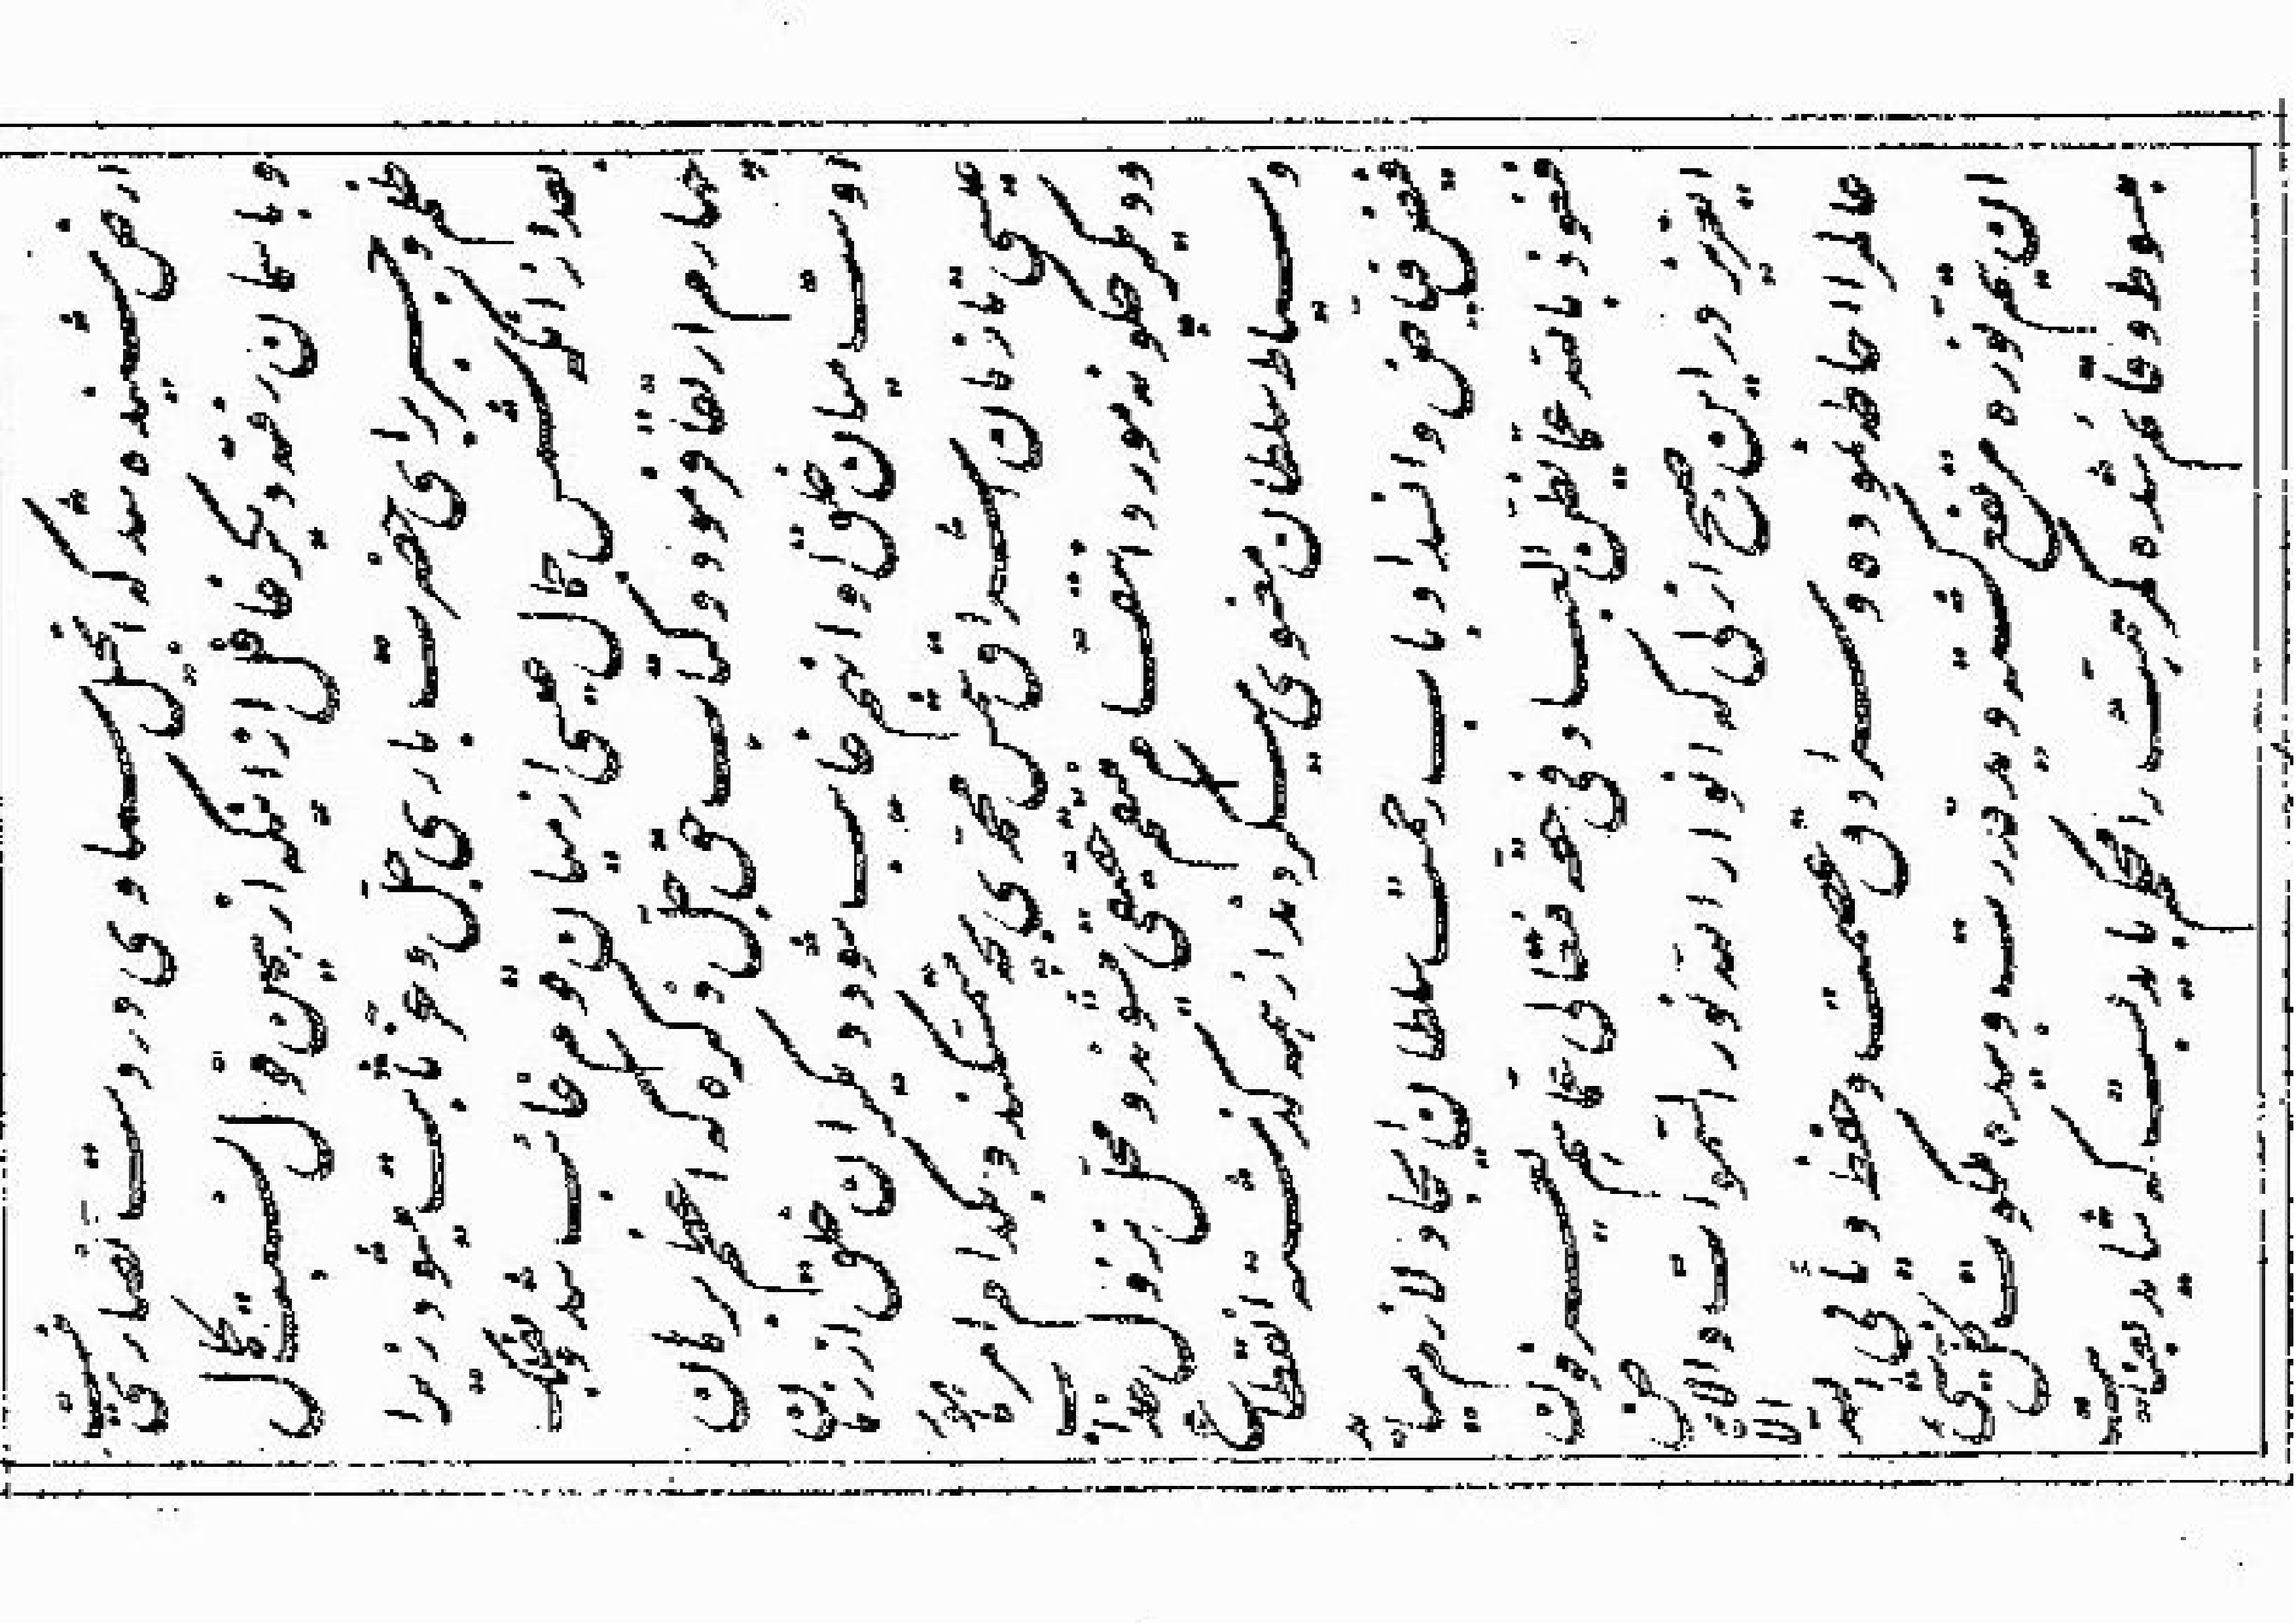 ارض شنیده شد که انجیل سماوی در دست نصاری نیست
و باسمان رفته دیگر غافل از اینکه از همین قول نسبت کمال
ظلم و جبر برای حضرت باری جل و عز ثابت میشود زیرا
بعد از انکه شمس جمال عیسی از میان قوم غائب شد و بفلک
چهارم ارتقا فرمود و کتاب حق جل ذکره که اعظم برهان
اوست میان خلق او انهم غایب شود دیگر ان خلق از زمان
عیسی تا زمان اشراق شمس محمدی بچه متمسکند و بکدام امر مامور
و دیگر چگونه مورد انتقام منتقم حقیقی میشوند و محل نزول عذاب
و سیاط سلطان معنوی میگردند از همه گذشته انقطاع
فیض فیاض و انسداد باب رحمت سلطان ایجاد لازم میاید
فنعوذ بالله عما یظن العباد فی حقه فتعالی عما هم یعرفون
ای عزیز در این صبح ازلی که انوار الله نور السموات والارض
عالم را احاطه نموده و سرادق عصمت و حفظ و یابی الله الا
ان یتم نوره مرتفع گشته و ید قدرت و بیده ملکوت کل شئ
مبسوط و قائم شده کمر همت را محکم باید بست که شاید بعنایت